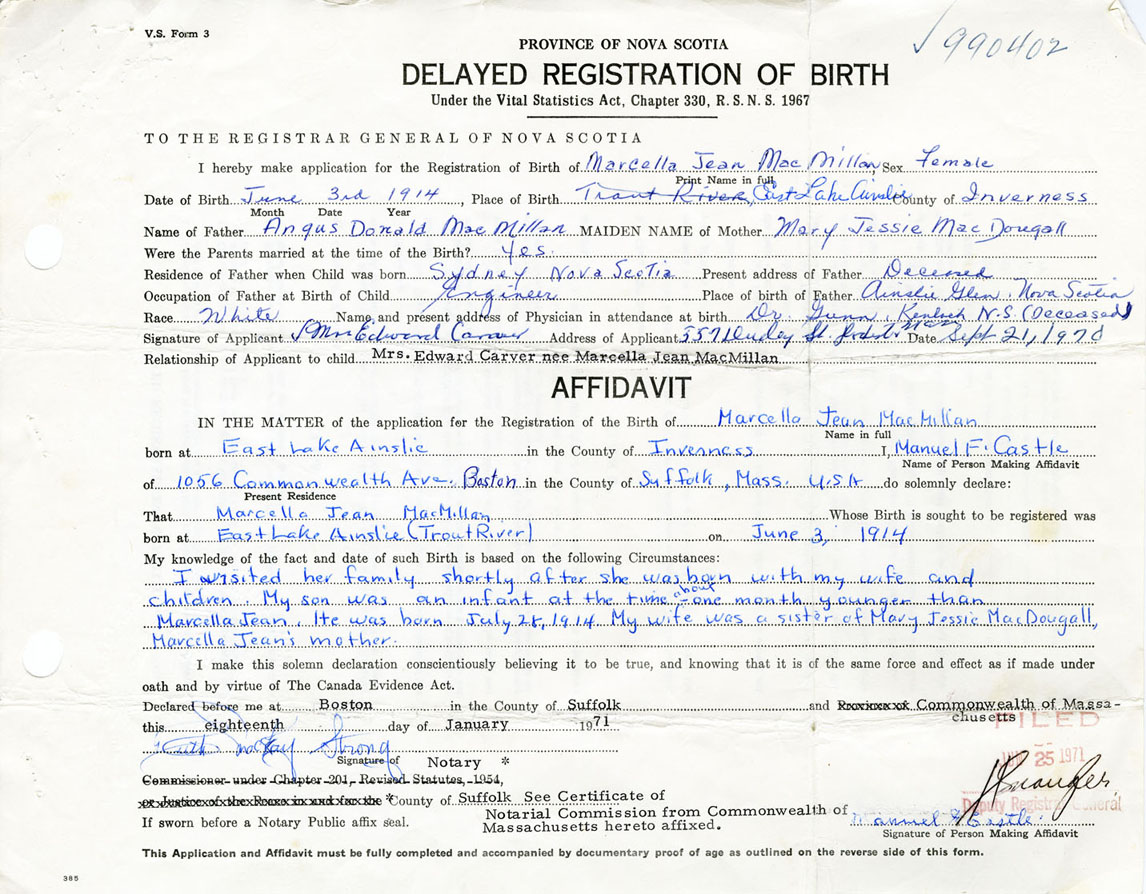 V.S. Form 3
990402
PROVINCE OF NOVA SCOTIA
DELAYED REGISTRATION OF BIRTH
Under the Vital Statistics Act, Chapter 330, R.S.N.S. 1967
TO THE REGISTRAR GENERAL OF NOVA SCOTIA
I hereby make application for the Registration of Birth of Marcella Jean MacMillan Sex Female
Print Name in full
Date of Birth June 3rd 1914, Place of Birth Trout River, East Lake Ainslie County of Inverness
Month Date Year
Name of Father Angus Donald MacMillan MAIDEN NAME of Mother Mary Jessie MacDougall
Were the Parents married at the time of the Birth? Yes.
Residence of Father when Child was born Sydney Nova Scotia Present address of Father Deceased
Occupation of Father at Birth of Child Engineer Place of birth of Father Ainslie Glen, Nova Scotia
Race White Name and present address of Physician in attendance at birth Dr. Gunn, Kenloch N.S. (Deceased)
Signature of Applicant Mrs Edward Carver Address of Applicant 557 Dudley St. Date Sept 21, 1970
Relationship of Applicant to child Mrs. Edward Carver nee Marcella Jean MacMillan
AFFIDAVIT
IN THE MATTER of the application for the Registration of the Birth of Marcella Jean MacMillan
Name in full
born at East Lake Ainslie in the County of Inverness I, Manuel F. Castle
Name of Person Making Affidavit
of 1056 Commonwealth Ave. Boston in the County of Suffolk, Mass. U.S.A do solemnly declare:
Present Residence
That Marcella Jean MacMillan Whose Birth is sought to be registered was
born at East Lake Ainslie (Trout River) on June 3, 1914
My knowledge of the fact and date of such Birth is based on the following Circumstances:
I visited her family shortly after she was born with my wife and
children. My son was an infant at the time - about one month younger than
Marcella Jean. He was born July 28, 1914. My wife was a sister of Mary Jessie MacDougall,
Marcella Jean's mother.
I make this solemn declaration conscientiously believing it to be true, and knowing that it is of the same force and effect as if made under
oath and by virtue of The Canada Evidence Act.
Declared before me at Boston in the County of Suffolk and Commonwealth of Massa-
chusetts
this eighteenth day of January 1971
FILED
25 1971
Ruth McKay Strong
Signature of Notary *
Commissioner under Chapter 201, Revised Statutes, 1954,
or Justice of the Peace in and for the * County of Suffolk See Certificate of
Deputy Registrar General
Notarial Commission from Commonwealth of
If sworn before a Notary Public affix seal. Massachusetts hereto affixed.
Manuel F Castle
Signature of Person Making Affidavit
This Application and Affidavit must be fully completed and accompanied by documentary proof of age as outlined on the reverse side of this form.
385